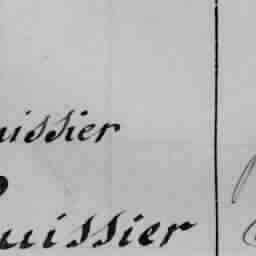 uissier
uissier